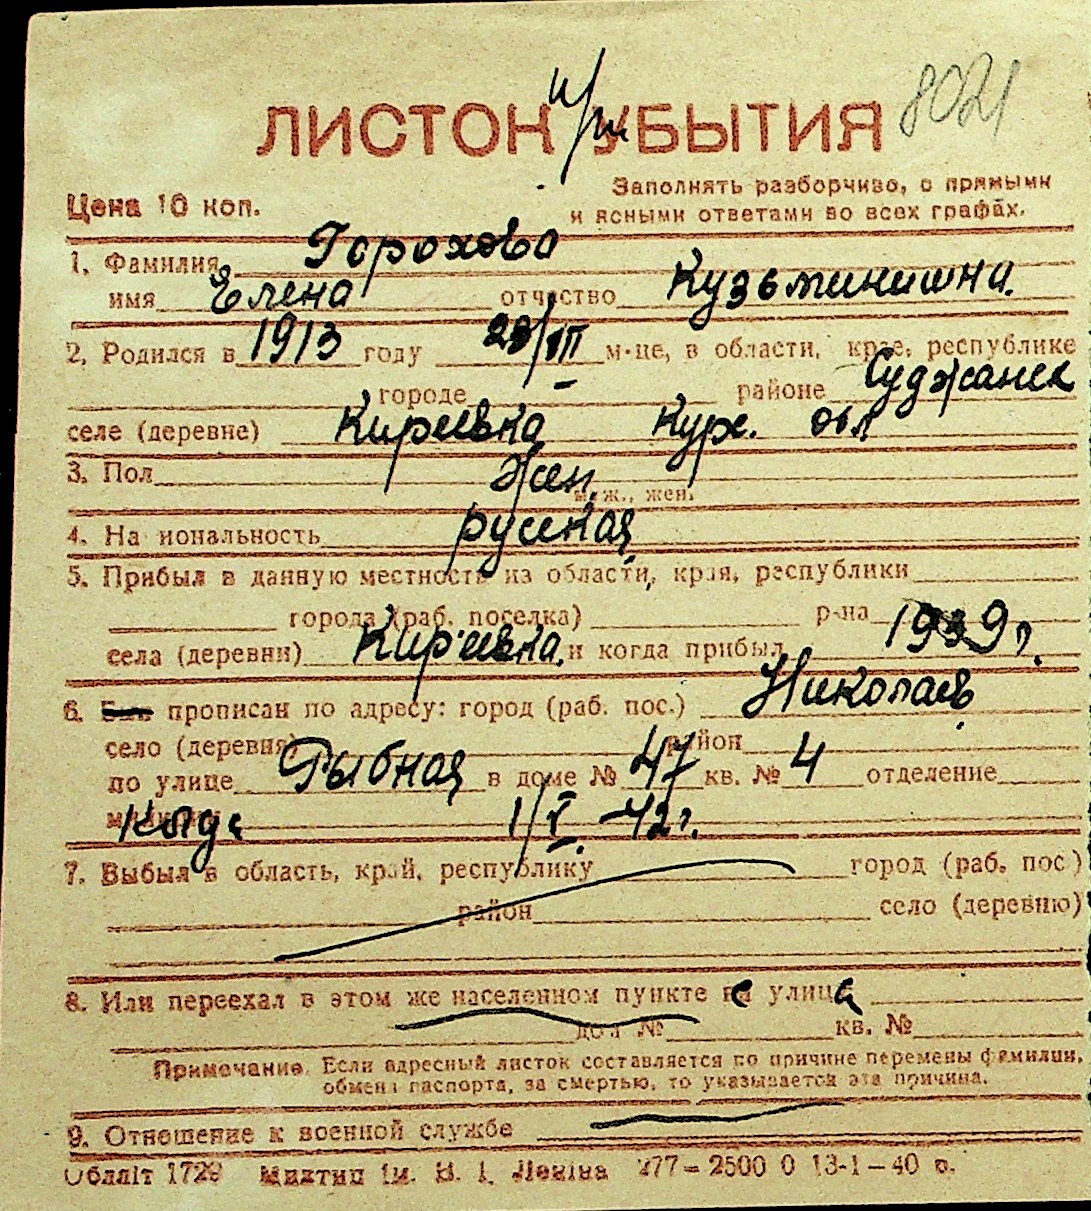 8021
ЛИСТОК УБЫТИЯ
Заполнять разборчиво, с прямыми
Цена 10 коп.
и ясными ответами во всех графах.
1. Фамилия Горохова
имя Елена отчество Кузьминишна.
2. Родился в 1913 году 23/VII м-це, в области, крае, республике
городе – районе Суджанск
селе (деревне) Киреевка Курс. обл
3. Пол Жен.
муж., жен.
4. Национальность русская
5. Прибыл в данную местность из области, края, республики
города (раб. поселка) р-на
села (деревни) Киреевка и когда прибыл 1939 г.
6. прописан по адресу: город (раб. пос.) Николаев
село (деревня) район
по улице Рыбная в доме № 47 кв. № 4 отделение
милиции 1/V-42 г.
7. Выбыл в область, край, республику город (раб. пос.)
район село (деревню)
8. Или переехал в этом же населенном пункте на улица
дом № кв. №
Примечание. Если адресный листок составляется по причине перемены фамилии,
обмена паспорта, за смертью, то указывается эта причина.
9. Отношение к военной службе
Обліт 1729 Миктип ім. В. І. Леніна 277–2500 0 13-1–40 р.